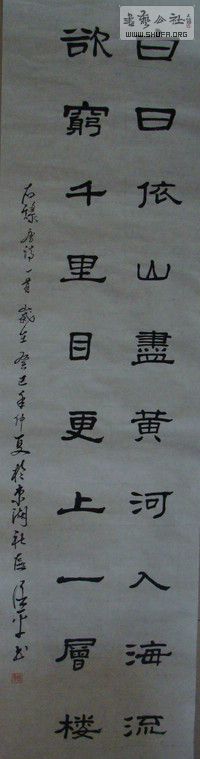 白日依山盡黃河入海流
欲窮千里目更上一層楼
右録唐詩一首歲在癸巳年仲夏於東湖社區
書藝公社
WWW.SHUFA.ORG